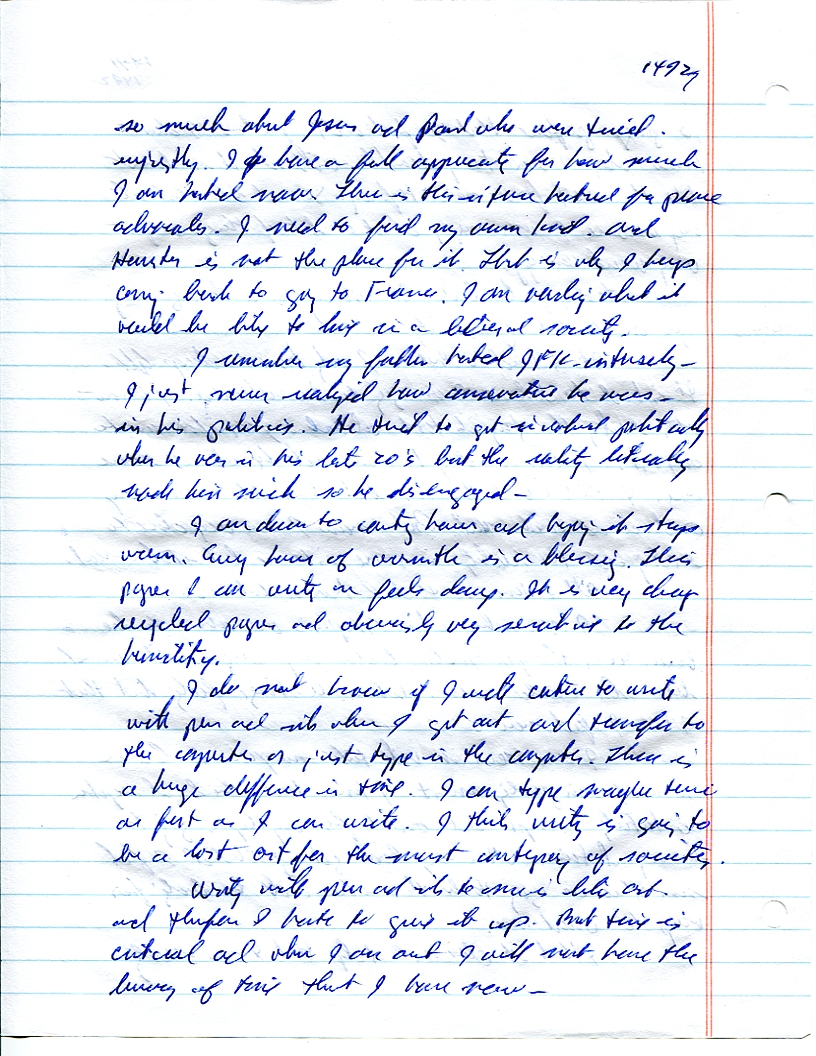 14929
so much about Jesus and Paul who were tried
unjustly. I have a full appreciate for how much
I am hated now. There is this intense hatred for peace
advocates. I need to find my own kind. and
Houston is not the place for it. That is why I keep
coming back to going to France. I am what it
would be like to live in a liberal society.
I remember my father hated JFK intensely –
I just never realized how conservative he was –
in his politics. He tried to get involved politically
when he was in his late 20's but the reality literally
made him sick so he disengaged –
I am down to county hours and hoping it stays
warm. Every hour of warmth is a blessing. This
paper I am writing on feels damp. It is very cheap
recycled paper and obviously very sensitive to the
humidity.
I do not know if I will continue to write
with pen and ink when I get out and transfer to
the computer or just type in the computer. There is
a huge difference in time. I can type maybe twice
as fast as I can write. I think writing is going to
be a lost art for the most of society.
Writing with pen and ink to me is like art
and therefore I hate to give it up. But time is
critical and when I am out I will not have the
luxury of time that I have now –